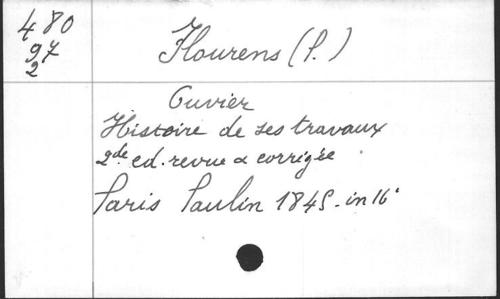 480
97
2
Flourens (P.)
Cuvier
Histoire de ses travaux
2de ed. revue & corrigée
Paris Paulin 1845 - in 16°